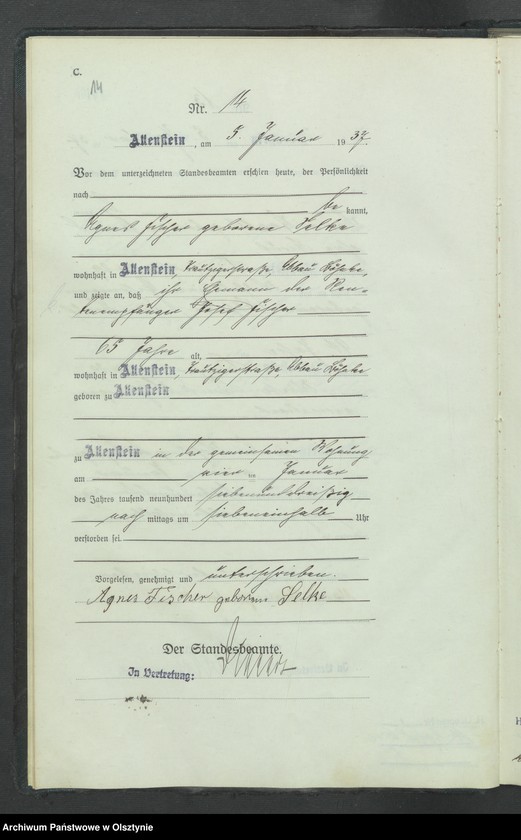 C.
14
Nr. 14
Allenstein, am 5. Januar 1937.
Vor dem unterzeichneten Standesbeamten erschien heute, der Persönlichkeit
nach
be kannt,
Agnes Fischer geborene Selke
wohnhaft in Allenstein, Trautzigerstraße, Abbau
und zeigte an, daß ihr Ehemann der Ren-
tenempfänger Josef Fischer
65 Jahre alt,
wohnhaft in Allenstein, Trautzigerstraße, Abbau
geboren zu Allenstein
zu Allenstein in der gemeinsamen Wohnung
am vier ten Januar
des Jahres tausend neunhundert siebenunddreißig
nach mittags um siebeneinhalb Uhr
verstorben sei.
Vorgelesen, genehmigt und unterschrieben.
Agnes Fischer geborene Selke
Der Standesbeamte.
In Vertretung:
Archiwum Państwowe w Olsztynie